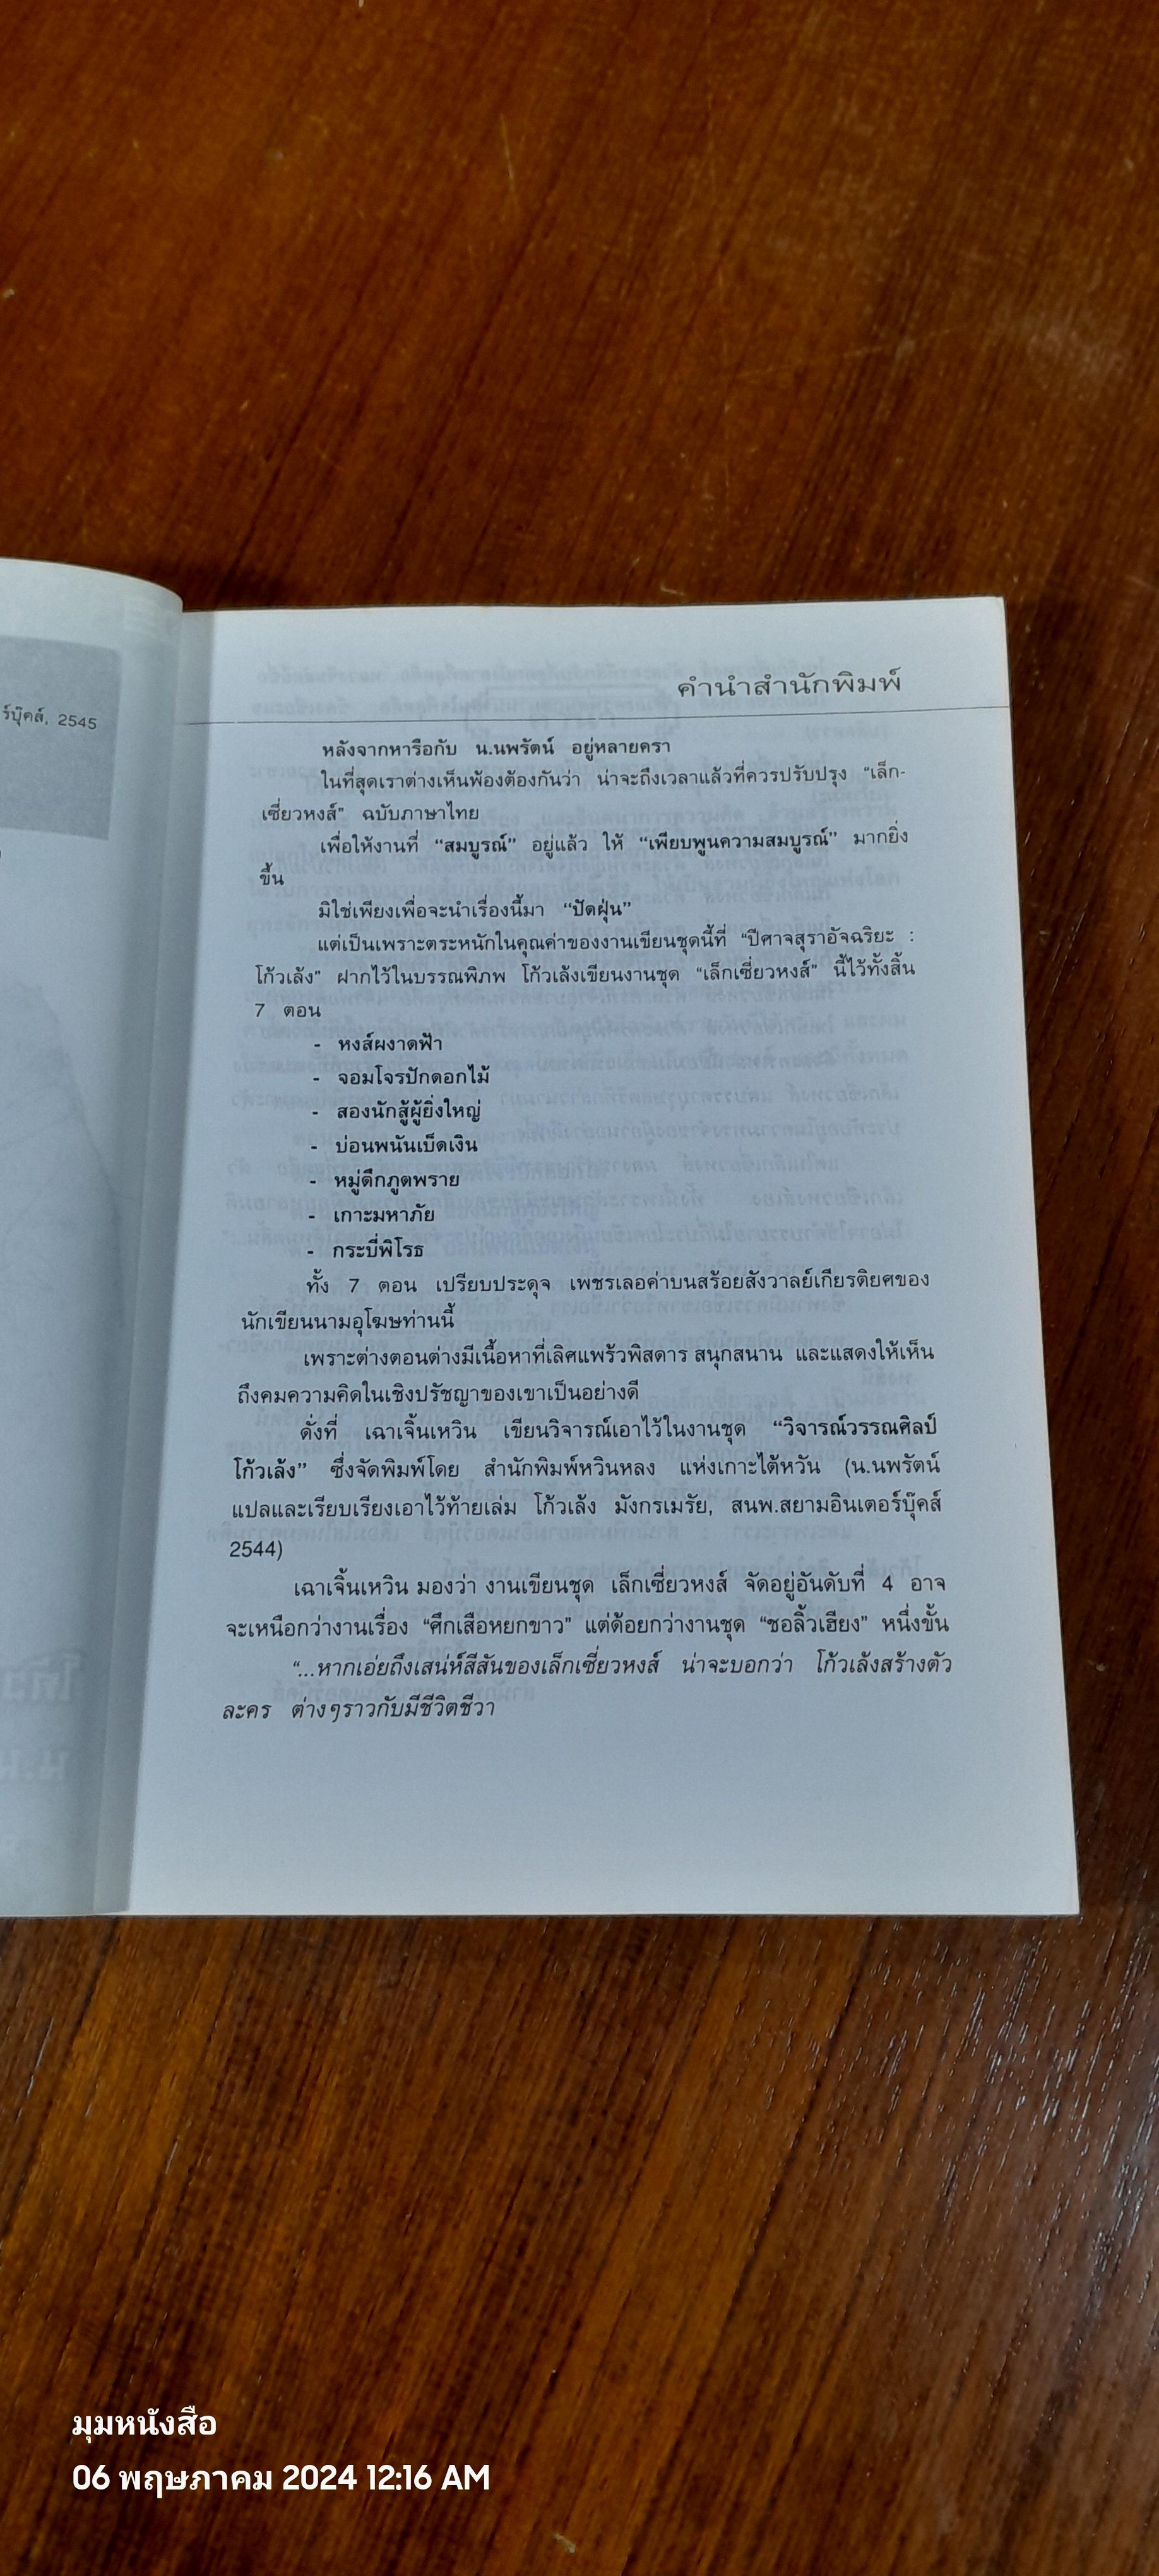 ร์บุ๊คส์, 2545
คำนำสำนักพิมพ์
หลังจากหารือกับ น.นพรัตน์ อยู่หลายครา
ในที่สุดเราต่างเห็นพ้องต้องกันว่า น่าจะถึงเวลาแล้วที่ควรปรับปรุง “เล็ก-
เซี่ยวหงส์” ฉบับภาษาไทย
เพื่อให้งานที่ “สมบูรณ์” อยู่แล้ว ให้ “เพียบพูนความสมบูรณ์” มากยิ่ง
ขึ้น
มิใช่เพียงเพื่อจะนำเรื่องนี้มา “ปัดฝุ่น”
แต่เป็นเพราะตระหนักในคุณค่าของงานเขียนชุดนี้ที่ “ปีศาจสุราอัจฉริยะ :
โก้วเล้ง” ฝากไว้ในบรรณพิภพ โก้วเล้งเขียนงานชุด “เล็กเซี่ยวหงส์” นี้ไว้ทั้งสิ้น
7 ตอน
- หงส์ผงาดฟ้า
- จอมโจรปักดอกไม้
- สองนักสู้ผู้ยิ่งใหญ่
- บ่อนพนันเบ็ดเงิน
- หมู่ตึกภูตพราย
- เกาะมหาภัย
- กระบี่พิโรธ
ทั้ง 7 ตอน เปรียบประดุจ เพชรเลอค่าบนสร้อยสังวาลย์เกียรติยศของ
นักเขียนนามอุโฆษท่านนี้
เพราะต่างตอนต่างมีเนื้อหาที่เลิศแพร้วพิสดาร สนุกสนาน และแสดงให้เห็น
ถึงคมความคิดในเชิงปรัชญาของเขาเป็นอย่างดี
ดั่งที่ เฉาเจิ้นเหวิน เขียนวิจารณ์เอาไว้ในงานชุด “วิจารณ์วรรณศิลป์
โก้วเล้ง” ซึ่งจัดพิมพ์โดย สำนักพิมพ์หวินหลง แห่งเกาะไต้หวัน (น.นพรัตน์
แปลและเรียบเรียงเอาไว้ท้ายเล่ม โก้วเล้ง มังกรเมรัย, สนพ.สยามอินเตอร์บุ๊คส์
2544)
เฉาเจิ้นเหวิน มองว่า งานเขียนชุด เล็กเซี่ยวหงส์ จัดอยู่อันดับที่ 4 อาจ
จะเหนือกว่างานเรื่อง “ศึกเสือหยกขาว” แต่ด้อยกว่างานชุด “ชอลิ้วเฮียง” หนึ่งขั้น
“...หากเอ่ยถึงเสน่ห์สีสันของเล็กเซี่ยวหงส์ น่าจะบอกว่า โก้วเล้งสร้างตัว
ละคร ต่างๆราวกับมีชีวิตชีวา
มุมหนังสือ
06 พฤษภาคม 2024 12:16 AM